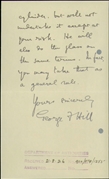 cylinder, but will not
undertake it except at
your risk. He will
also do the places on
the same terms. In fact
you may take that as
a general rule.
Yours sincerely
George F Hill